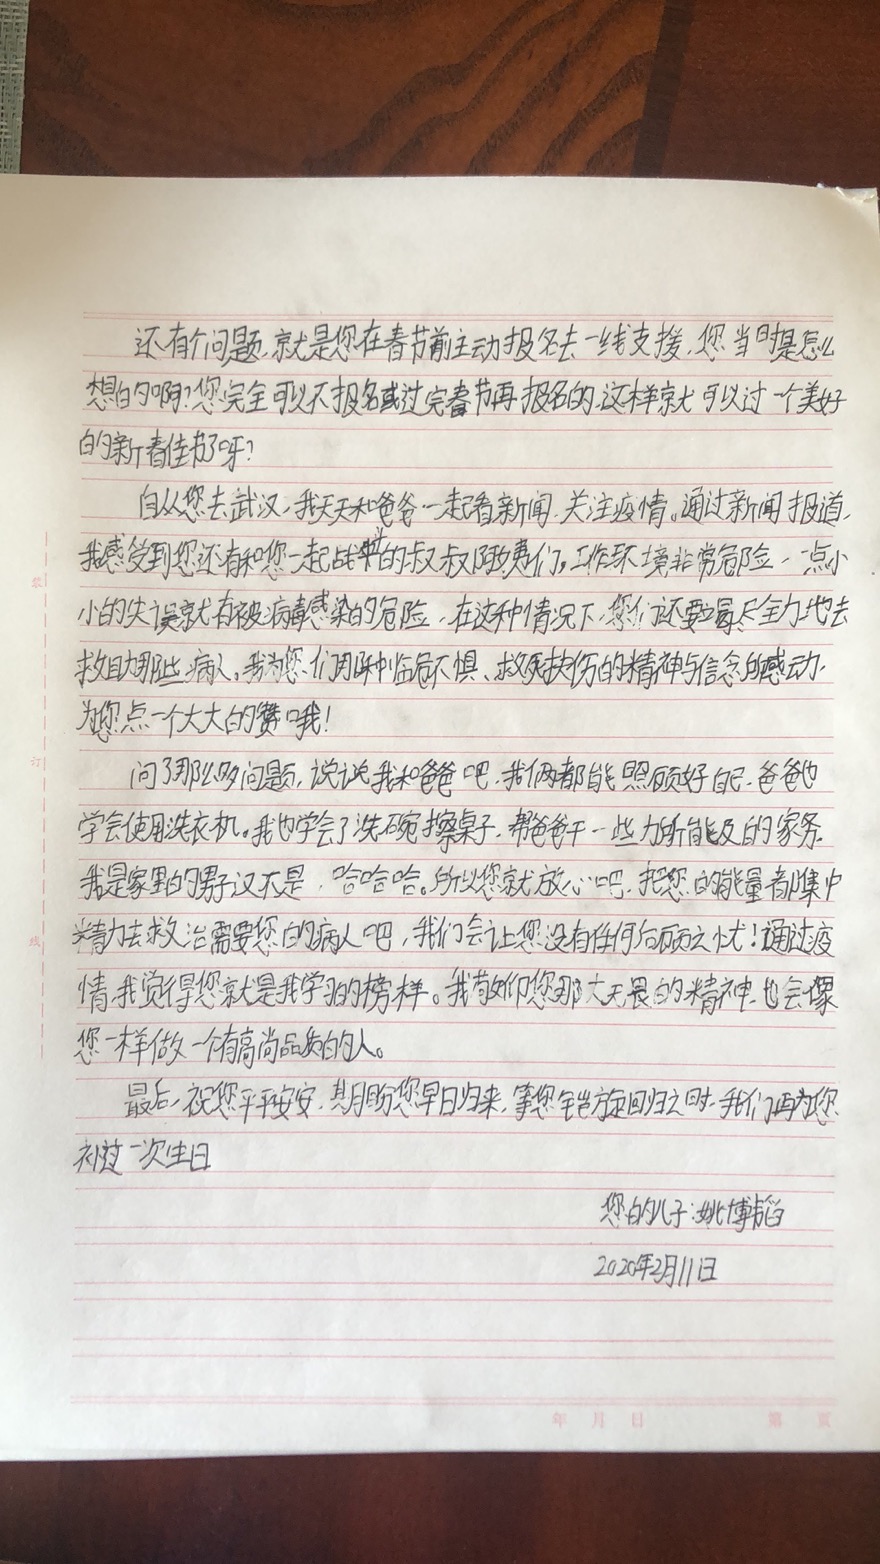 还有个问题,就是您在春节前主动报名去一线支援,您当时是怎么
想的啊?您完全可以不报名或过完春节再报名的,这样就可以过一个美好
的新春佳节了呀?
自从您去武汉,我天天和爸爸一起看新闻,关注疫情。通过新闻报道,
我感受到您还有和您一起战斗的叔叔阿姨们,工作环境非常危险,一点小
小的失误就有被病毒感染的危险,在这种情况下,您们还要竭尽全力地去
救助那些病人。我为您们那种临危不惧、救死扶伤的精神与信念所感动,
为您点一个大大的赞哦!
问了那么多问题,说说我和爸爸吧,我俩都能照顾好自己,爸爸也
学会使用洗衣机。我也学会了洗碗擦桌子,帮爸爸干一些力所能及的家务.
我是家里的男子汉不是,哈哈哈。所以您就放心吧,把您的能量都集中
精力去救治需要您的病人吧,我们会让您没有任何后顾之忧!通过疫
情,我觉得您就是我学习的榜样。我敬仰您那大无畏的精神,也会像
您一样做一个有高尚品质的人。
最后,祝您平平安安,期盼您早日归来,等您凯旋回归之时,我们再为您
补过一次生日
您的儿子:姚博韬
2020年2月11日
装
订
线
年 月 日 第 页